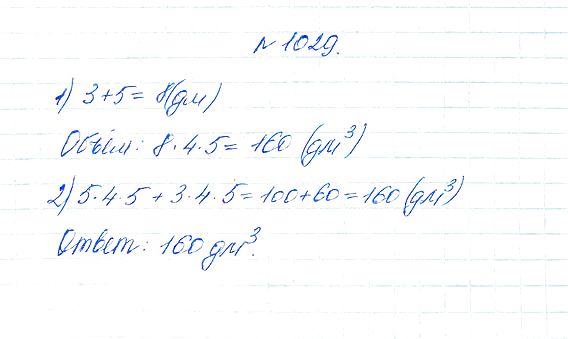 № 1029.
1) 3+5= 8(дм)
Объём: 8·4·5= 160 (дм³)
2) 5·4·5 + 3·4·5=100+60=160 (дм³)
Ответ: 160 дм³.